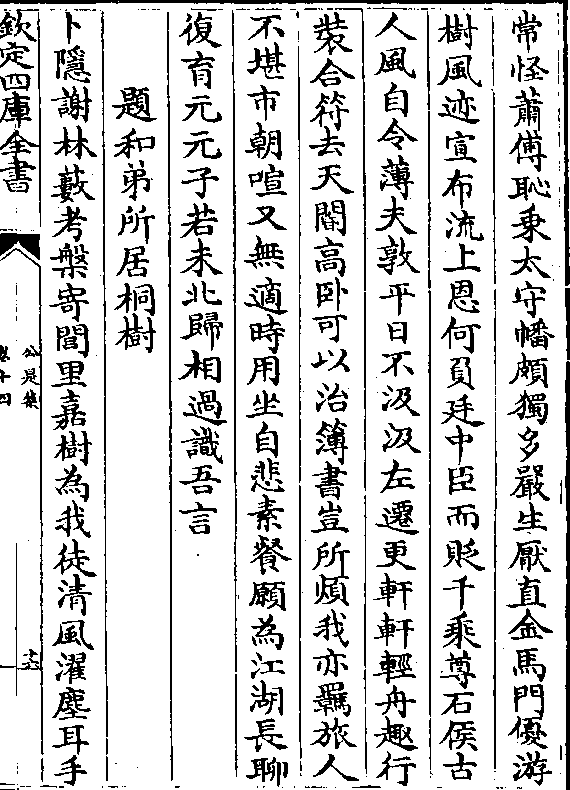 常怪蕭傅恥秉太守幡頗獨多嚴生厭直金馬門優游
樹風迹宣布流上恩何負廷中臣而貶千乘尊石侯古
人風自令薄夫敦平日不汲汲左遷更軒軒輕舟趣行
裝合符去天閽高卧可以治簿書豈所煩我亦羈旅人
不堪市朝喧又無適時用坐自悲素餐願為江湖長聊
復育元元子若未北歸相過識吾言
題和弟所居桐樹
卜隱謝林藪考槃寄閭里嘉樹為我徒清風濯塵耳手
欽定四庫全書
公是集
卷十四
十六